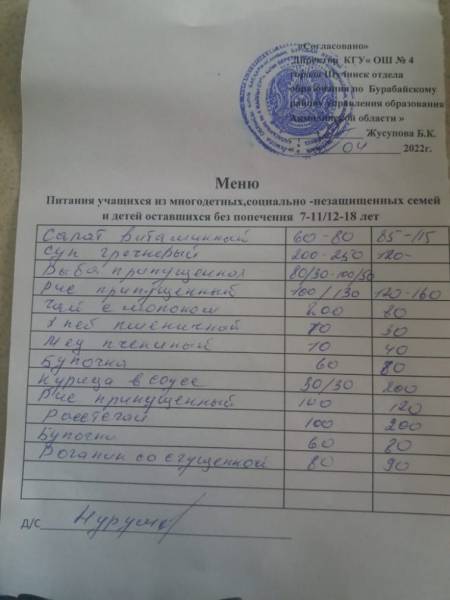 «Согласовано»
Директор КГУ« ОШ № 4
города Щучинск отдела
образования по Бурабайскому
району управления образования
Акмолинской области »
Жусупова Б.К.
04 2022г.
Меню
Питания учащихся из многодетных,социально -незащищенных семей
и детей оставшихся без попечения 7-11/12-18 лет
Салат витаминный 60-80 85-115
Суп гречневый 200-250 120-
Рыба припущенная 80/30-100/50
Рис припущенный 100/130 120-160
Чай с молоком 200 20
Хлеб пшеничной 70 30
Мед пчелиный 10 40
Булочка 60 80
Курица в соусе 30/30 200
Рис припущенный 100 120
Расстегай 100 200
Булочка 60 80
со сгущенкой 80 90
Д/С